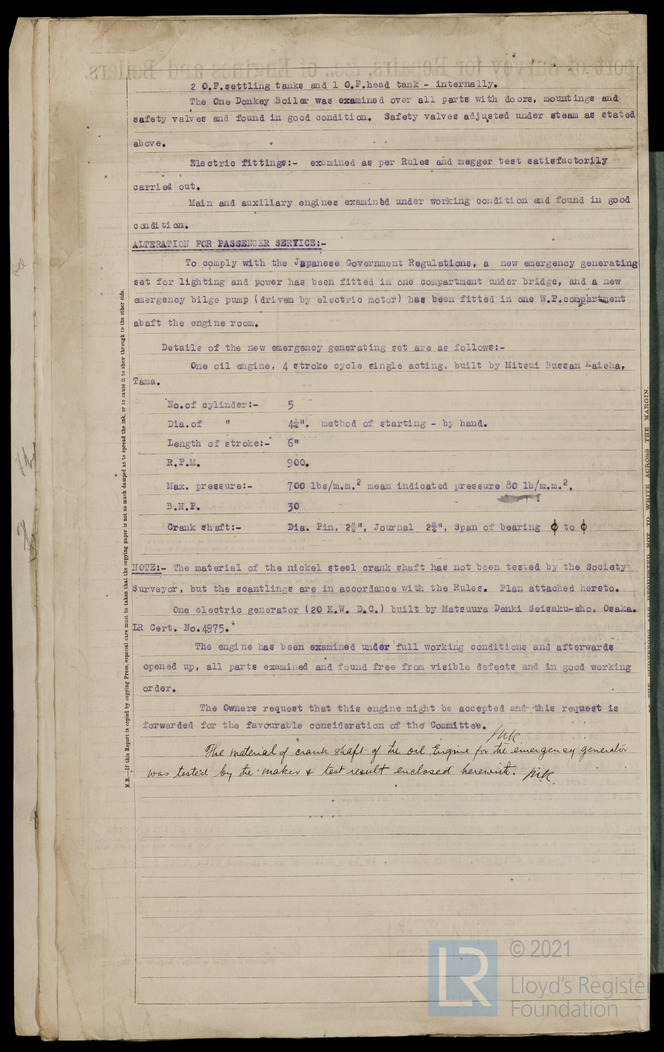 2 O.F.settling tanks and 1 O.F.head tank - internally.
The One Donkey Boiler was examined over all parts with doors, mountings and
safety valves and found in good condition. Safety valves adjusted under steam as stated
above.
Electric fittings:- examined as per Rules and megger test satisfactorily
carried out.
Main and auxiliary engines examined under working condition and found in good
condition.
ALTERATION FOR PASSENGER SERVICE:-
To comply with the Japanese Government Regulations, a new emergency generating
set for lighting and power has been fitted in one compartment under bridge, and a new
emergency bilge pump (driven by electric motor) has been fitted in one W.P.compartment
abaft the engine room.
Details of the new emergency generating set are as follows:-
One oil engine, 4 stroke cycle single acting, built by Mitsui Bussan Kaisha,
Tama.
No.of cylinder:- 5
Dia.of " 4¼". method of starting - by hand.
Length of stroke:- 6"
R.P.M. 900.
Max. pressure:- 700 lbs/m.m.² mean indicated pressure 80 lb/m.m.².
B.H.P. 30
Crank shaft:- Dia. Pin, Journal Span of bearing ϕ to ϕ
NOTE:- The material of the nickel steel crank shaft has not been tested by the Society
Surveyor, but the scantlings are in accordance with the Rules. Plan attached hereto.
One electric generator (20 K.W. D.C.) built by Matsuura Denki Seisaku-sho, Osaka.
LR Cert. No.4975.
The engine has been examined under full working conditions and afterwards
opened up, all parts examined and found free from visible defects and in good working
order.
The Owners request that this engine might be accepted and this request is
forwarded for the favourable consideration of the Committee.
The material of crank shaft of the oil Engine for the emergency generator
was tested by the maker & test result enclosed herewith.
N.B.—If this Report is copied by copying Press, especial care must be taken that the copying paper is not so much damped as to spread the ink, or to cause it to shew through to the other side.
LR
© 2021
Lloyd's Register
Foundation